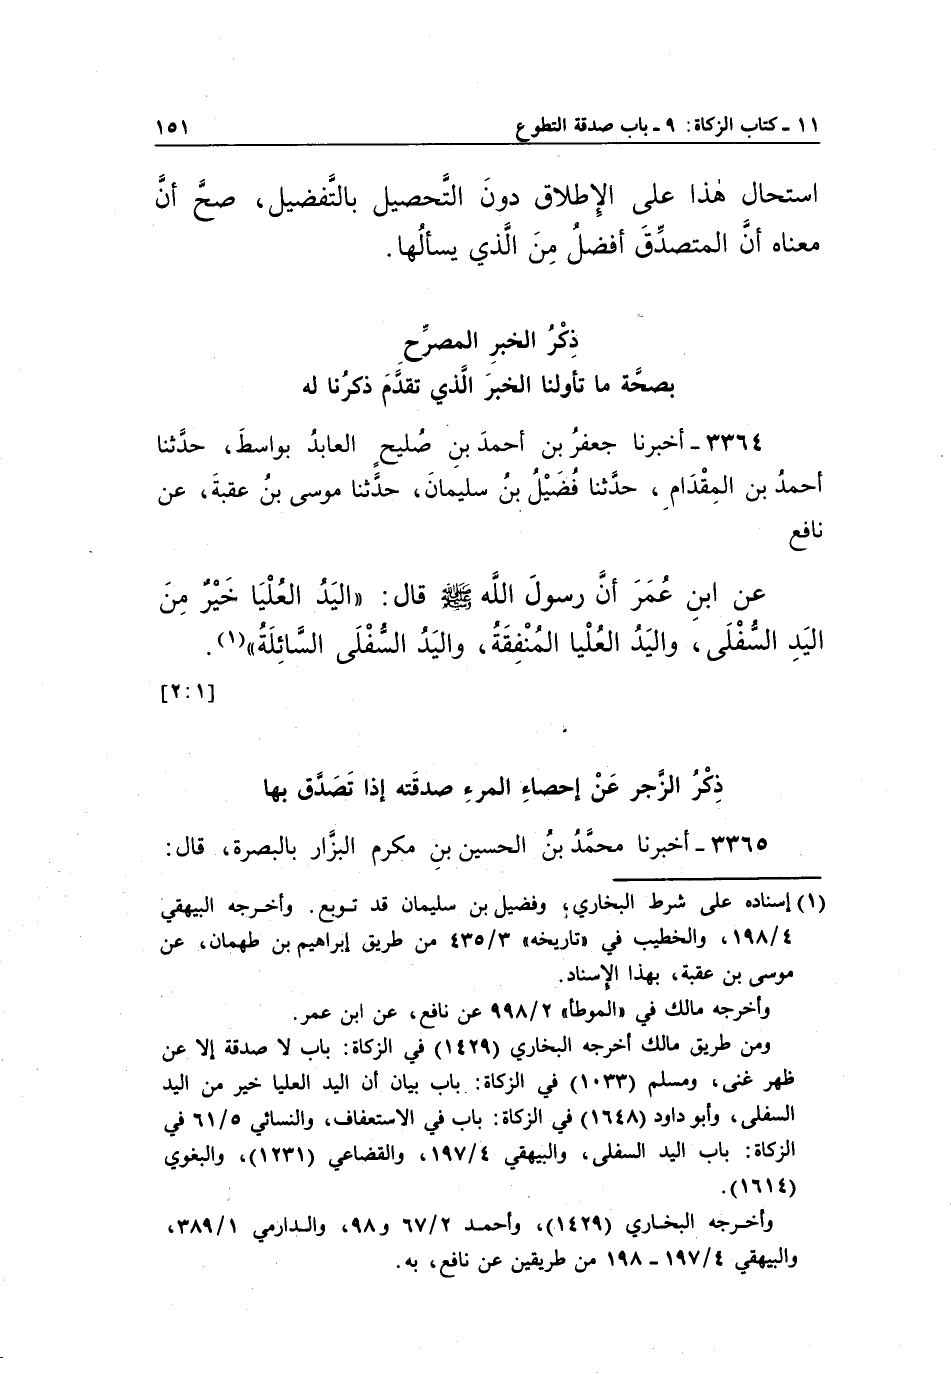 ١١ - كتاب الزكاة: ٩ - باب صدقة التطوع ١٥١
استحال هٰذا على الإِطلاق دونَ التَّحصيل بالتَّفضيل، صحَّ أنَّ
معناه أنَّ المتصدِّقَ أفضلُ مِنَ الَّذي يسألُها.
ذِكْرُ الخبرِ المصرِّحِ
بصحَّة ما تأولنا الخبرَ الَّذي تقدَّمَ ذكرُنا له
٣٣٦٤ - أخبرنا جعفرُ بن أحمدَ بنِ صُليحٍ العابدُ بواسطَ، حدَّثنا
أحمدُ بن المِقْدَامِ، حدَّثنا فُضَيْلُ بنُ سليمانَ، حدَّثنا موسى بنُ عقبةَ، عن
نافع
عن ابنِ عُمَرَ أنَّ رسولَ اللَّه ﷺ قال: «اليَدُ العُلْيَا خَيْرٌ مِنَ
اليَدِ السُّفْلَى، واليَدُ العُلْيا المُنْفِقَةُ، واليَدُ السُّفْلَى السَّائِلَةُ»(١).
[٢:١]
ذِكْرُ الزَّجر عَنْ إحصاءِ المرءِ صدقَته إذا تَصَدَّق بها
٣٣٦٥ - أخبرنا محمَّدُ بنُ الحسين بنِ مكرم البزَّار بالبصرة، قال:
(١) إسناده على شرط البخاري، وفضيل بن سليمان قد توبع. وأخرجه البيهقي
١٩٨/٤، والخطيب في «تاريخه» ٤٣٥/٣ من طريق إبراهيم بن طهمان، عن
موسى بن عقبة، بهذا الإسناد.
وأخرجه مالك في «الموطأ» ٩٩٨/٢ عن نافع، عن ابن عمر.
ومن طريق مالك أخرجه البخاري (١٤٢٩) في الزكاة: باب لا صدقة إلا عن
ظهر غنى، ومسلم (١٠٣٣) في الزكاة: باب بيان أن اليد العليا خير من اليد
السفلى، وأبو داود (١٦٤٨) في الزكاة: باب في الاستعفاف، والنسائي ٦١/٥ في
الزكاة: باب اليد السفلى، والبيهقي ١٩٧/٤، والقضاعي (١٢٣١)، والبغوي
(١٦١٤).
وأخرجه البخاري (١٤٢٩)، وأحمد ٦٧/٢ و٩٨، والدارمي ٣٨٩/١،
والبيهقي ١٩٧/٤ - ١٩٨ من طريقين عن نافع، به.